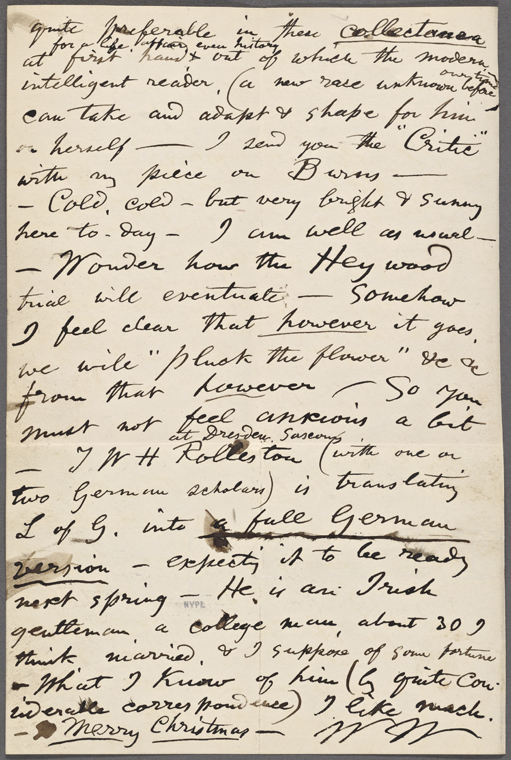 quite preferable in these collectanea
for a life, affair, even history
at first hand & out of which the modern
intelligent reader, (a new race unknown before
our time)
can take and adapt & shape for him
or herself — I send you the "Critic"
with my piece on Burns —
— Cold, cold – but very bright & sunny
here to-day – I am well as usual –
— Wonder how the Heywood
trial will eventuate — Somehow
I feel clear that however it goes,
we will "pluck the flower" &c &c
from that however — So you
must not feel anxious a bit
at Dresden, Saxony
— T W H Rolleston (with one or
two German scholars) is translating
L of G. into a full German
version – expects it to be ready
next spring – He is an Irish
NYPL
gentleman, a college man, about 30 I
think married, & I suppose of some fortune
– What I know of him (by quite con-
siderable correspondence) I like much.
– Merry Christmas – W W